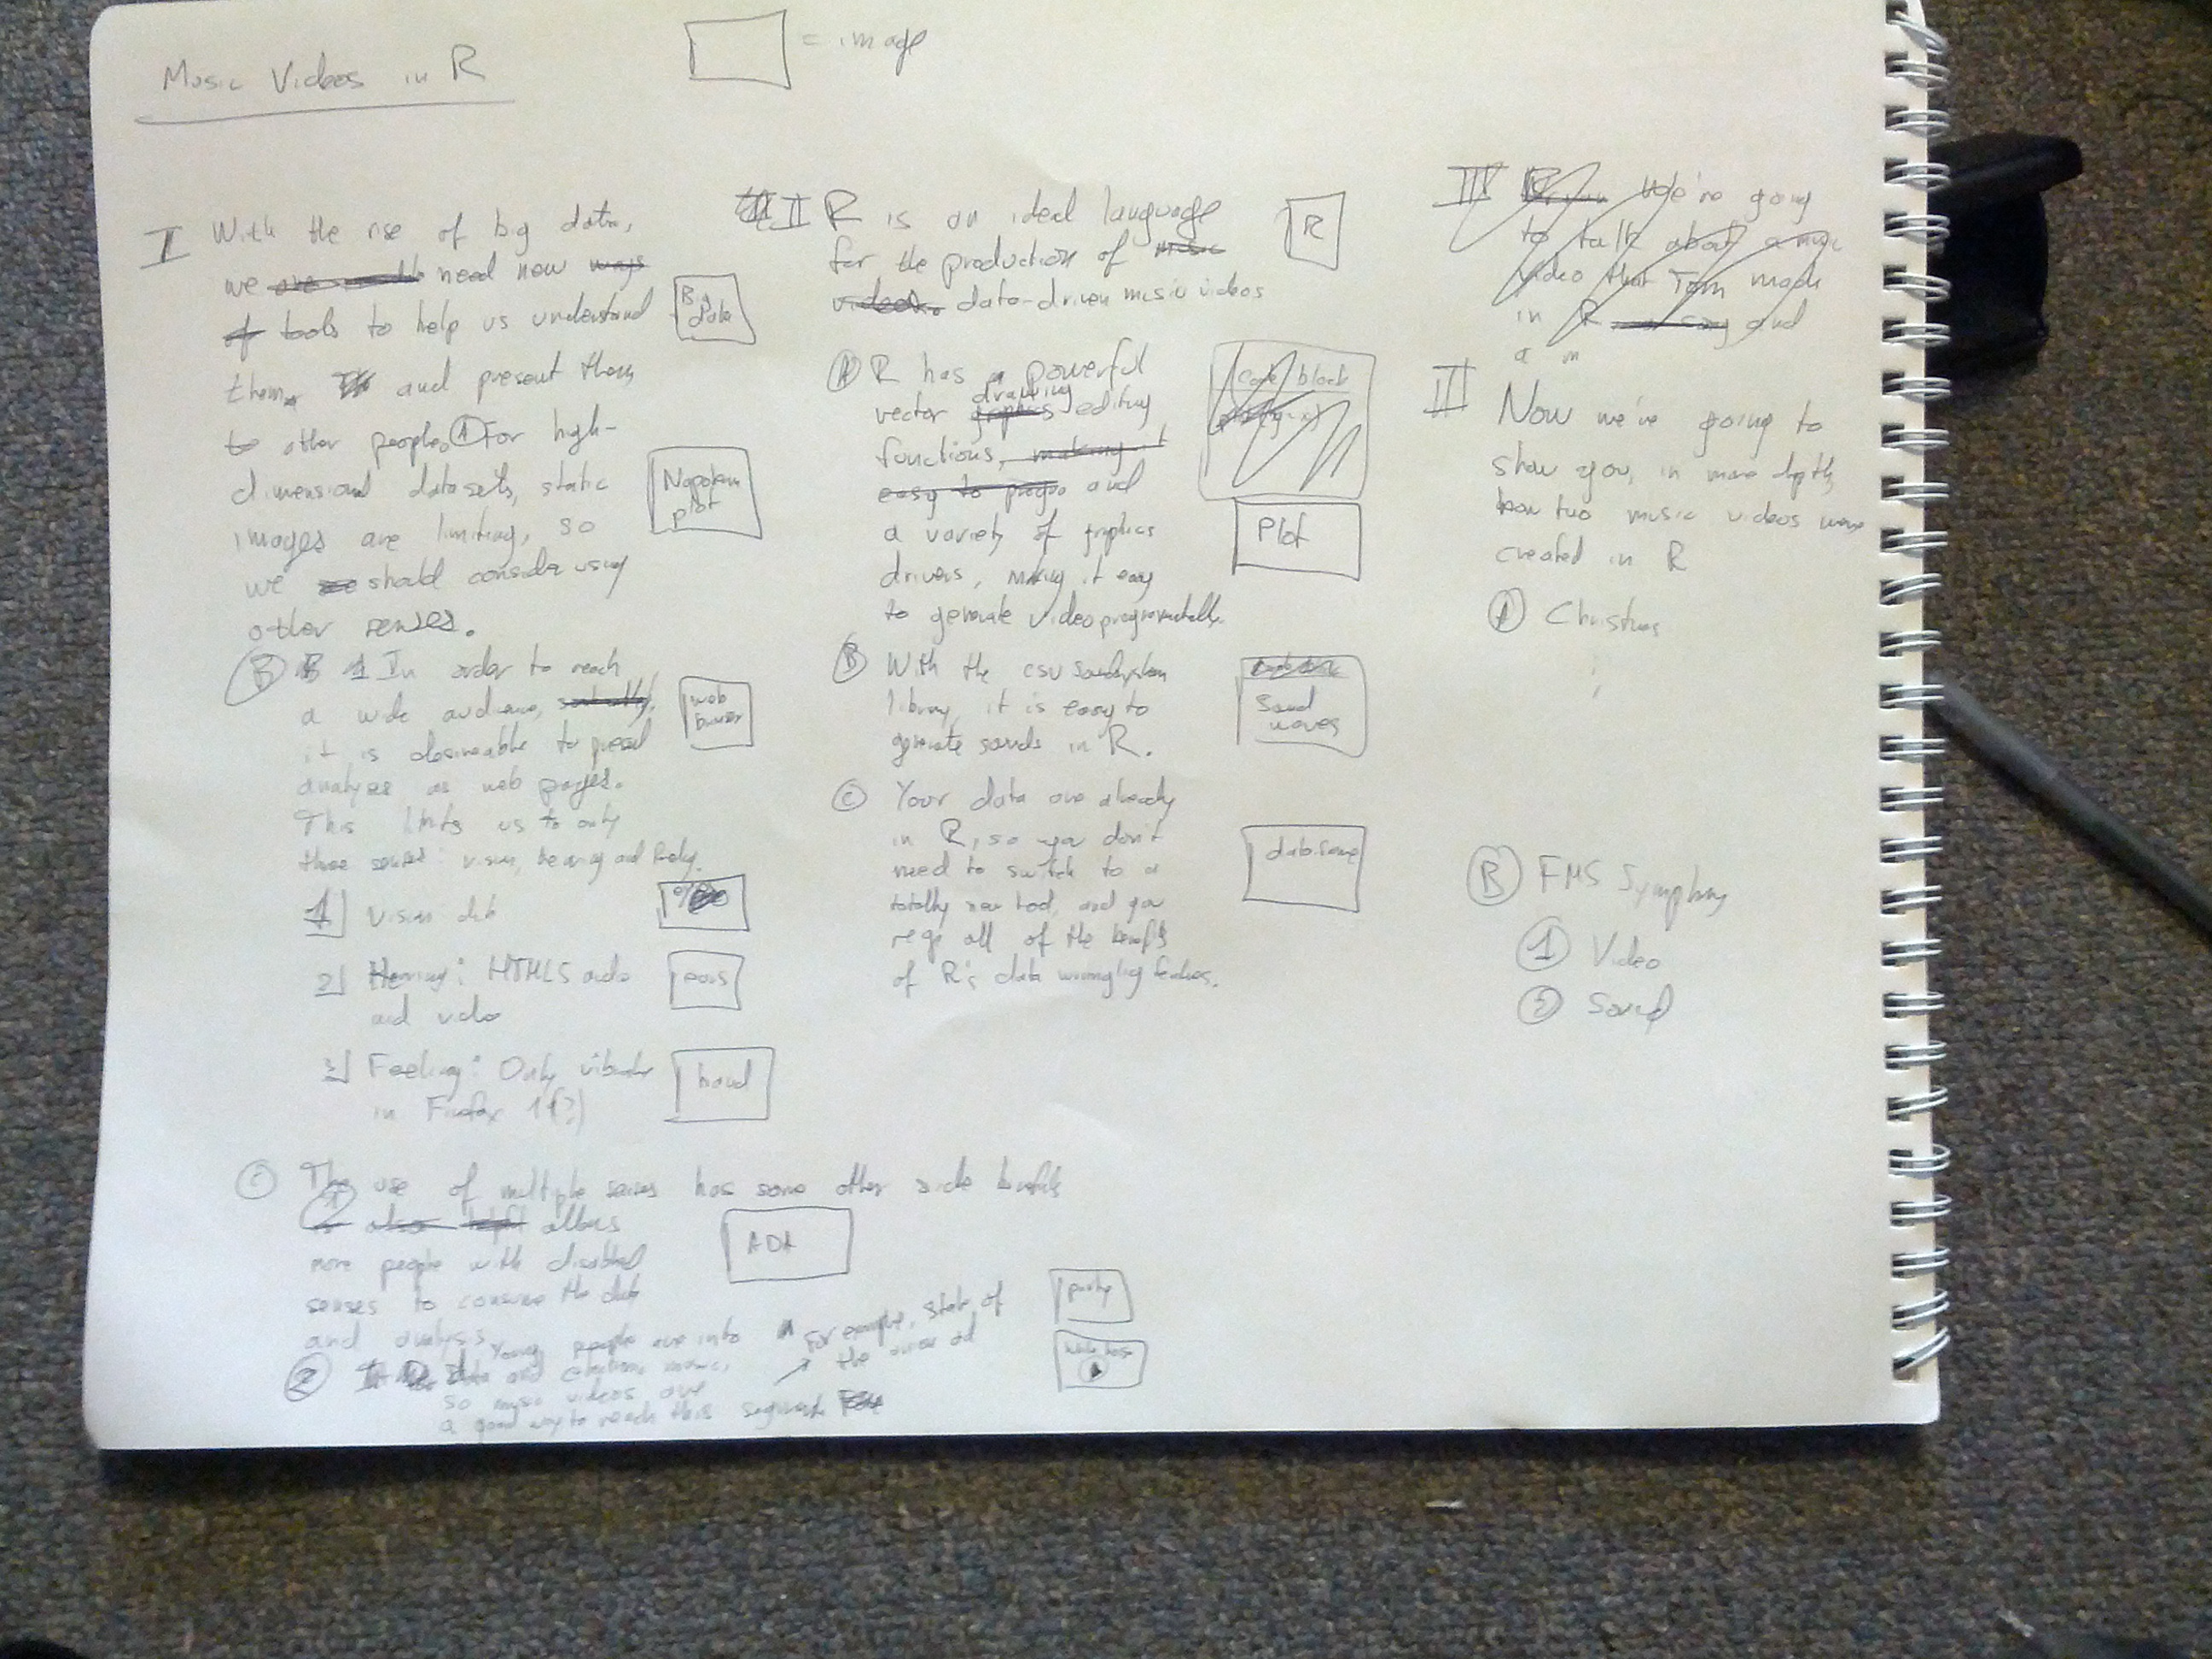 Music Videos in R
= image
I With the rise of big data,
we need new ways
tools to help us understand
Big Data
them and present them
to other people. A For high-
dimensional datasets, static
Napoleon plot
images are limiting, so
we should consider using
other senses.
B 1 In order to reach
a wide audience,
web browser
it is desireable to
analyses as web pages.
This limits us to only
three senses: vision, hearing and feeling.
1 Vision
2 Hearing: HTML5 audio
and video
ears
3 Feeling: Only vibrate
in Firefox 11(?)
hand
C The use of multiple senses has some other side benefits
1 also allows
more people with disabled
senses to consume the data
and analysis
ADA
2 Young people are into
data and electronic music,
so music videos are
a good way to reach this segment
For example, State of
the union ad
party
white house
II R is an ideal language
for the production of music
videos. data-driven music videos
R
A R has a powerful
vector graphics drawing editing
functions, making it
easy to and
a variety of graphics
drivers, making it easy
to generate video programmatically.
code block
Plot
B With the csv soundsystem
library, it is easy to
generate sounds in R.
Sound
waves
C Your data are already
in R, so you don't
need to switch to a
totally new tool, and you
reap all of the benefits
of R's data wrangling features.
data.frame
III We're going
to talk about a music
video that Tom made
in R and
a m
III Now we're going to
show you, in more depth,
how two music videos were
created in R
A Christmas
B FMS Symphony
1 Video
2 Sound